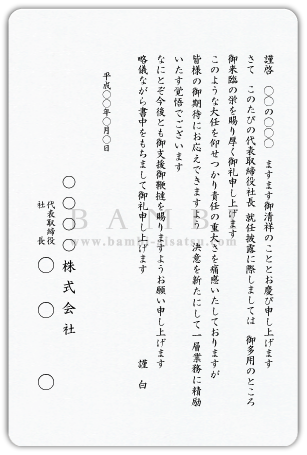 謹啓　〇〇の〇〇　ますます御清祥のこととお慶び申し上げます
さて　このたびの代表取締役社長 就任披露に際しましては　御多用のところ
御来臨の栄を賜り厚く御礼申し上げます
このような大任を仰せつかり責任の重大さを痛感いたしておりますが
皆様の御期待にお応えできますよう　決意を新たにして一層業務に精励
いたす覚悟でございます
なにとぞ今後とも御支援御鞭撻を賜りますようお願い申し上げます
略儀ながら書中をもちまして御礼申し上げます
謹　白
平成〇〇年〇月〇日
〇〇〇〇株式会社
代表取締役
社長　〇　〇　〇　〇
BAMB